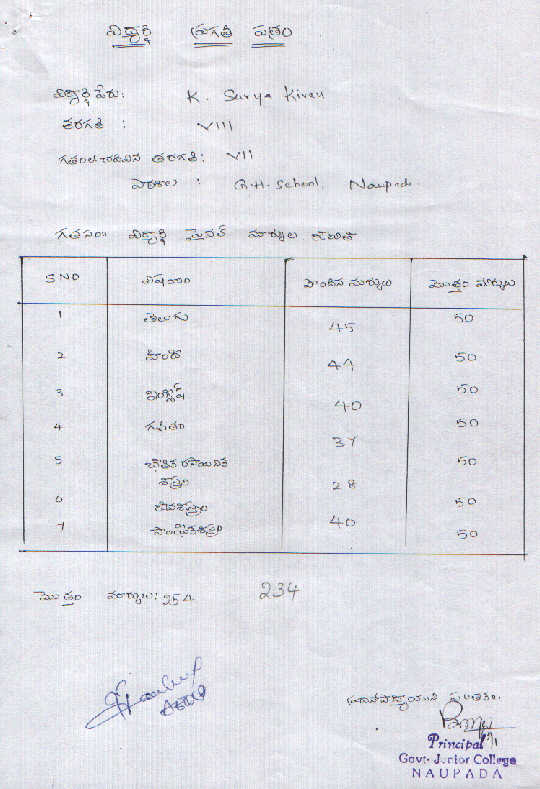 విద్యార్థి ప్రగతి పత్రం
విద్యార్థి పేరు: K. Surya Kiran
తరగతి : VIII
గతంలో చదివిన తరగతి: VII
పాఠశాల : G.H. School, Naupada.
గత సం: విద్యార్థి ఫైనల్ మార్కుల
S NO విషయం పొందిన మార్కులు మొత్తం మార్కులు
1 తెలుగు 45 50
2 హిందీ 50
3 ఇంగ్లీష్ 40 50
4 గణితం 37 50
5 భౌతిక రసాయనిక శాస్త్రం 28 50
6 జీవశాస్త్రం 40 50
7 సాంఘికశాస్త్రం 50
మొత్తం మార్కులు: 254 234
ప్రధానోపాధ్యాయుని
Principal
Govt. Junior College
NAUPADA